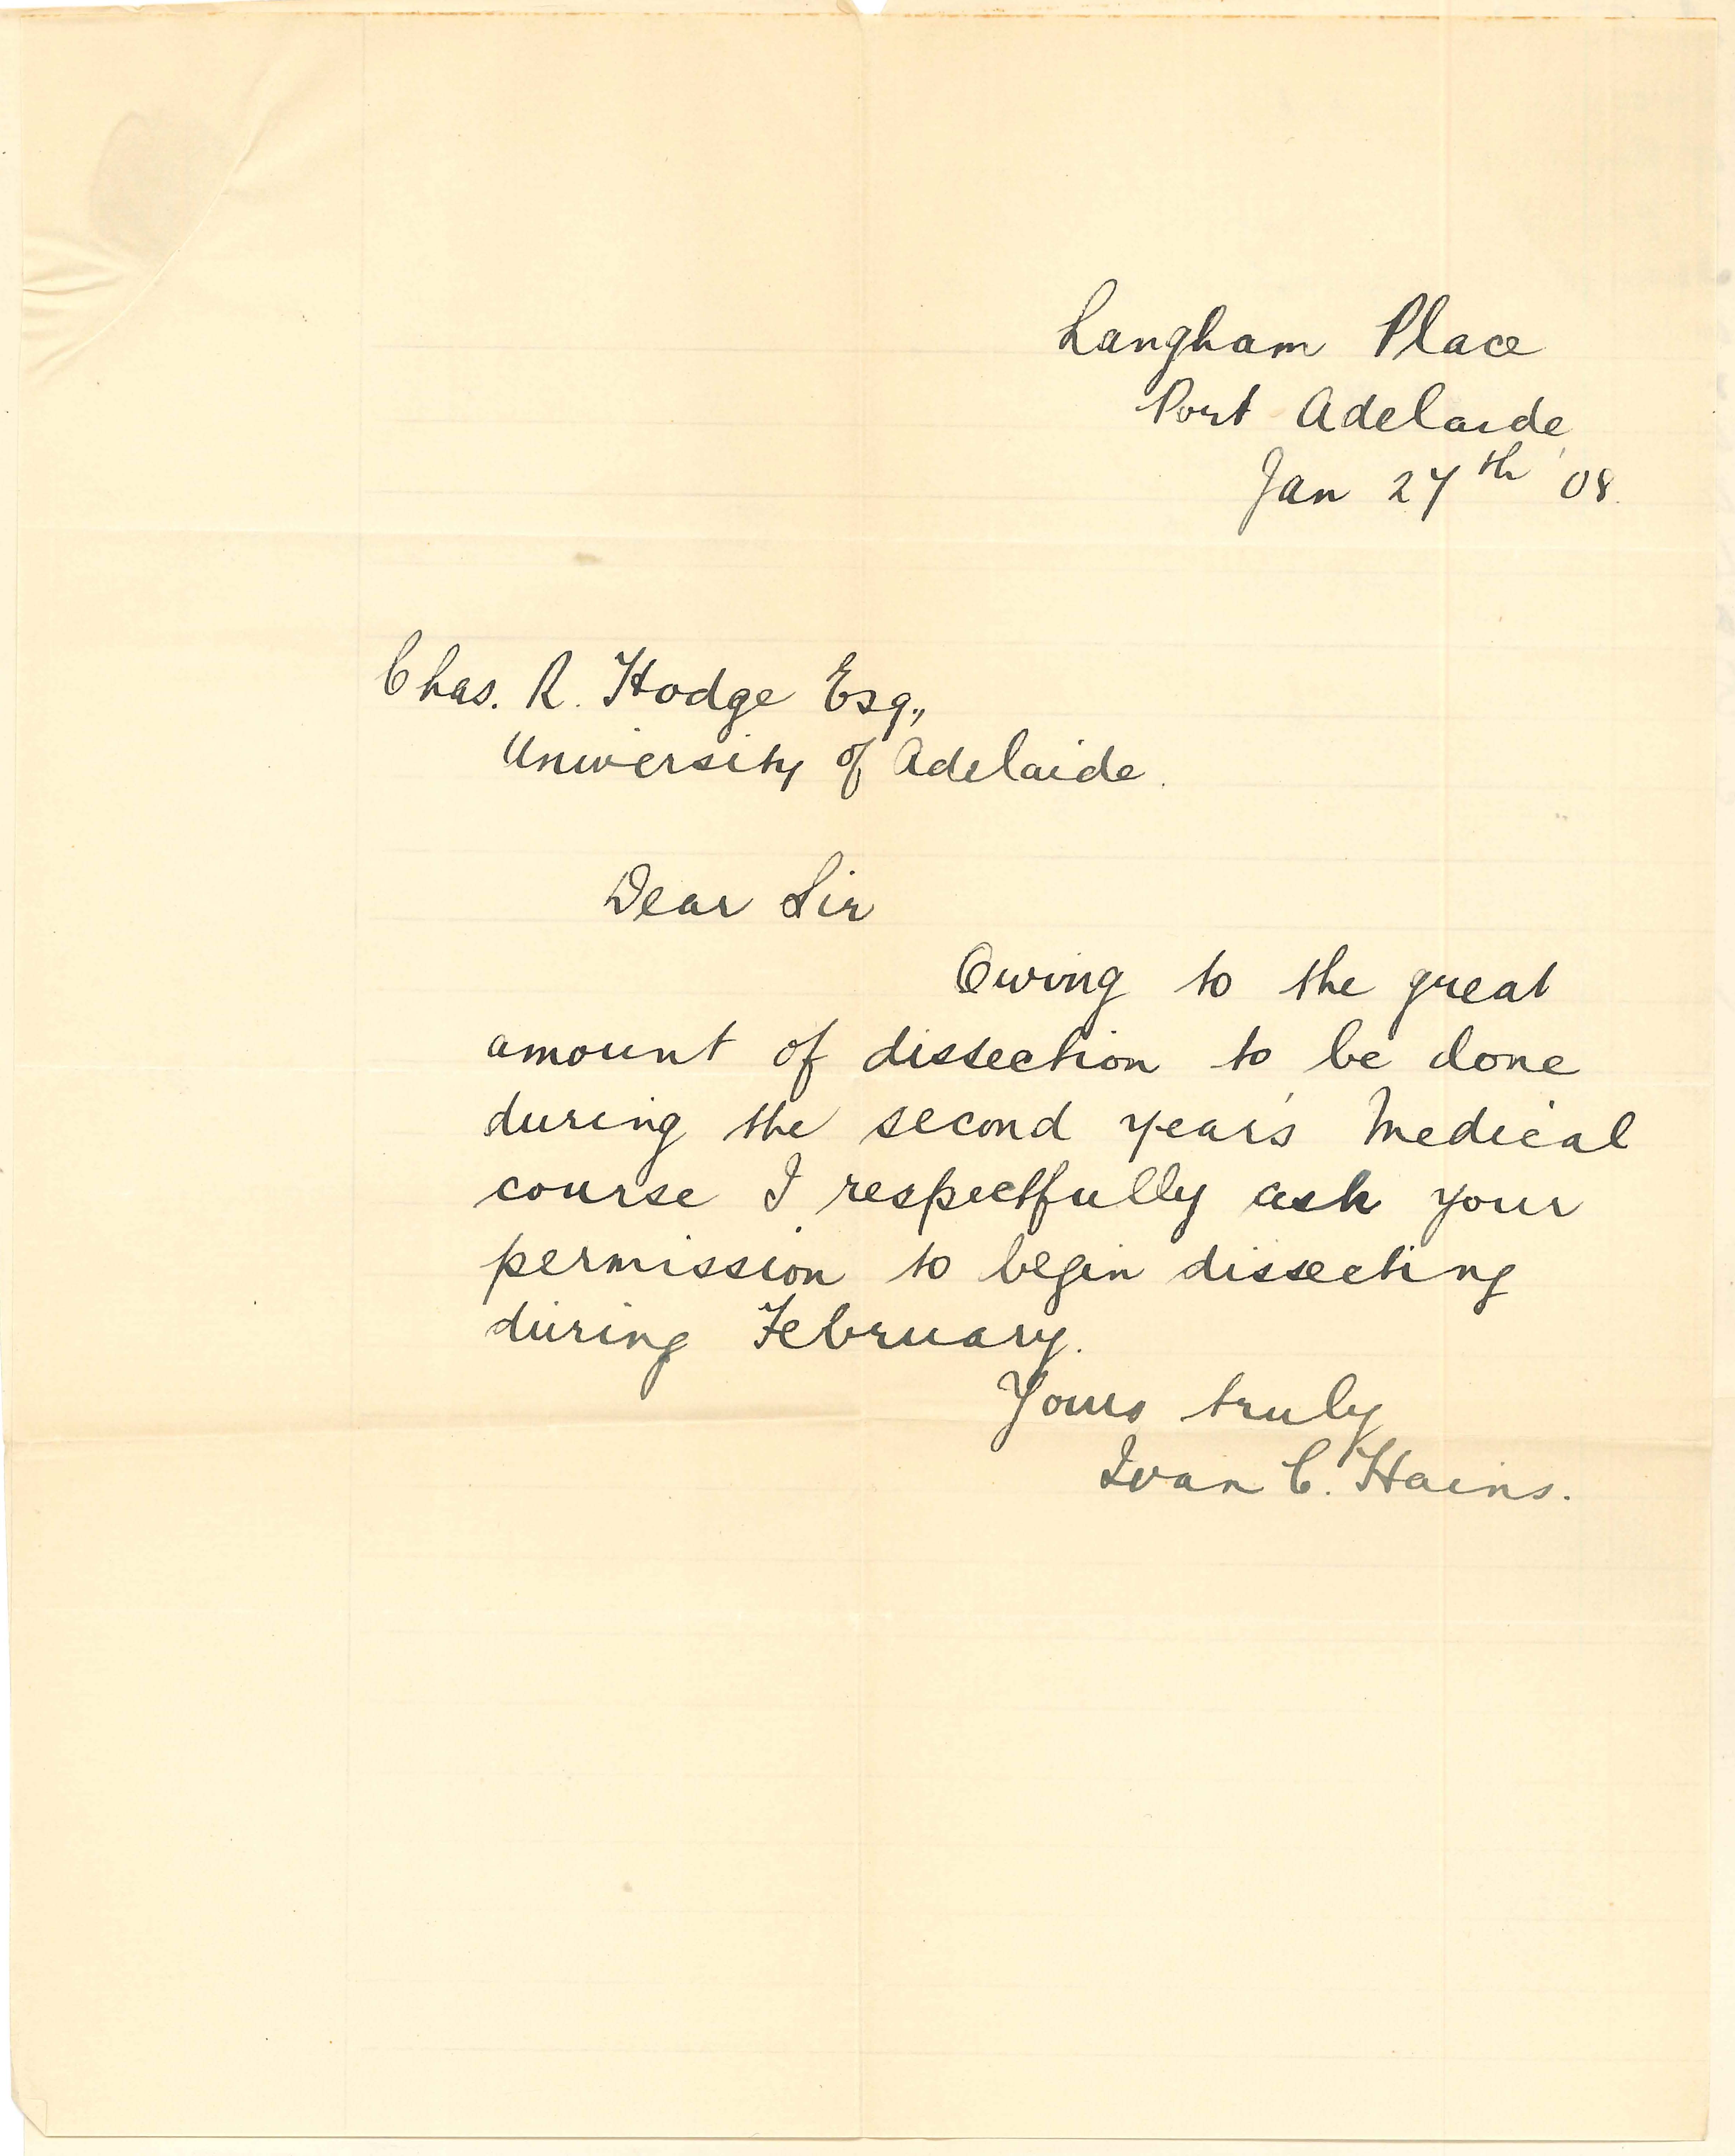 Langham Place
Port Adelaide
Jan 27th '08.
Chas. R. Hodge Esq.,
University of Adelaide.
Dear Sir
Owing to the great
amount of dissection to be done
during the second year's Medical
course I respectfully ask your
permission to begin dissecting
during February.
Yours truly
Ivan C. Hains.